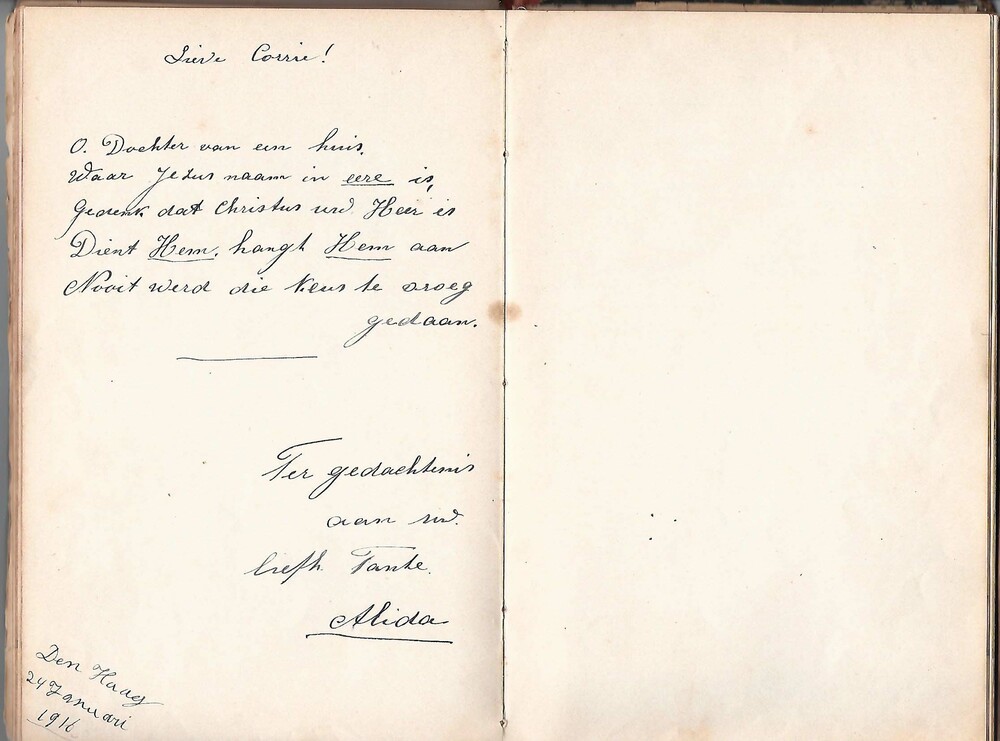 Lieve Corrie!
O. Dochter van een huis.
Waar Jezus naam in eere is,
Gedenk dat Christus uw Heer is
Dient Hem, hangt Hem aan
Nooit werd die keus te vroeg
gedaan.
Ter gedachtenis
aan uw.
liefh Tante.
Alida
Den Haag
24 Januari
1916